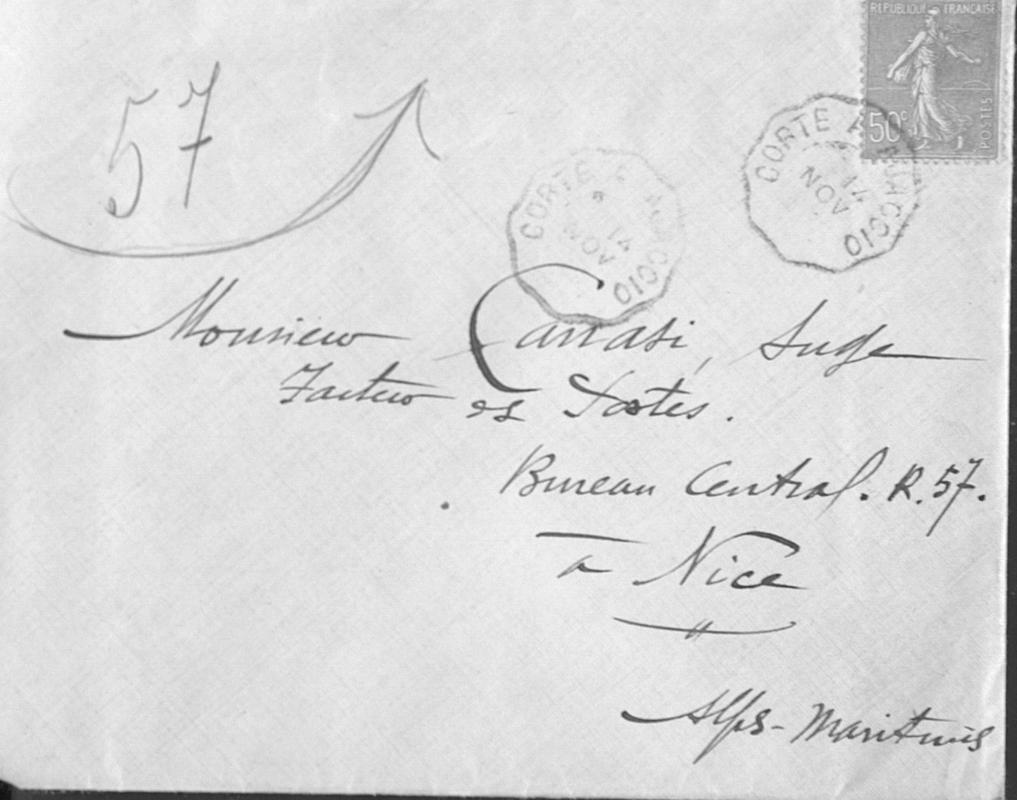 REPUBLIQUE FRANÇAISE
50c
POSTES
CORTE A AJACCIO
14
NOV
CORTE A AJACCIO
14
NOV
57
Monsieur Carrasi, Ange
Facteur des Postes.
Bureau Central. R. 57.
à Nice
Alpes-Maritimes